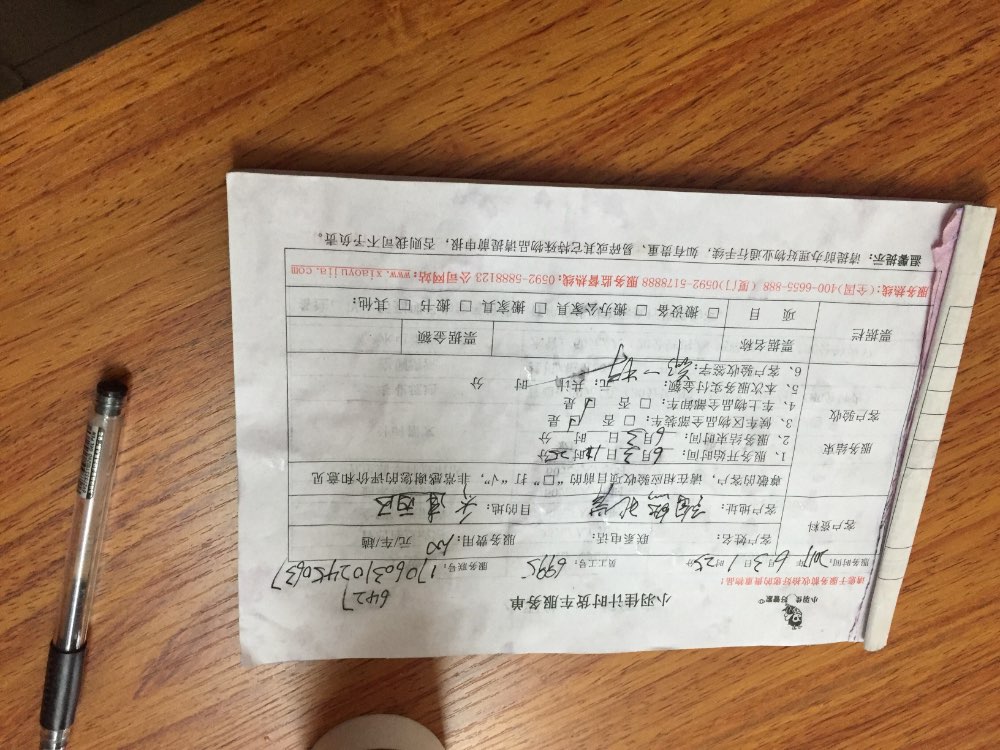 小羽佳 好管家
小羽佳计时货车服务单
6427
请您于服务前收捡好您的贵重物品！
服务时间：2017年6月3日1时25分 员工工号：6995 服务联号：170603102450637
客户资料
客户姓名： 联系电话： 服务费用：100元/车/趟
客户地址： 目的地：
尊敬的客户，请在相应验收项目前的“□”打“√”，非常感谢您的评价和意见
服务结束
客户验收
1、服务开始时间：6月3日 时25分
2、服务结束时间：6月3日 时 分
3、候车区物品全部装车：□ 否 ☑ 是
4、车上物品全部卸车：□ 否 ☑ 是
5、本次服务实付金额： 元；共计 时 分
6、客户验收签字：
票据栏
票据名称 票据金额
项 目 □ 搬设备 □ 搬办公家具 □ 搬家具 □ 搬书 □ 其他：
服务热线：(全国)400-6655-888 (厦门)0592-5178888 服务监督热线：0592-5888123 公司网站：www.xiaoyujia.com
温馨提示：请提前办理好物业通行手续，如有贵重、易碎或其它特殊物品请提前申报，否则我司不予负责。